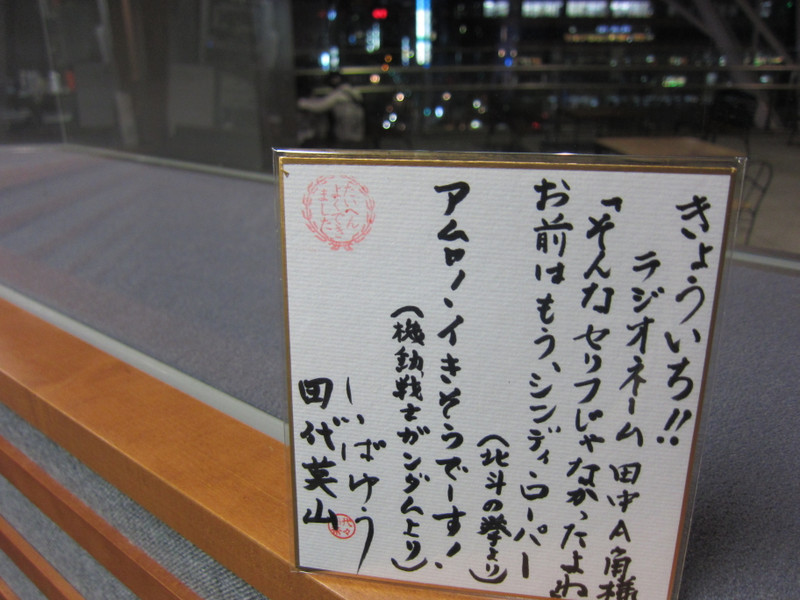 きょういち!!
ラジオネーム 田中A角様
「そんなセリフじゃなかったよね
お前はもう、シンディ・ローパー
(北斗の拳より)
アムロ、イきそうでーす!
(機動戦士ガンダムより)
しいばゆう
田代英山
たいへん
よくでき
ました